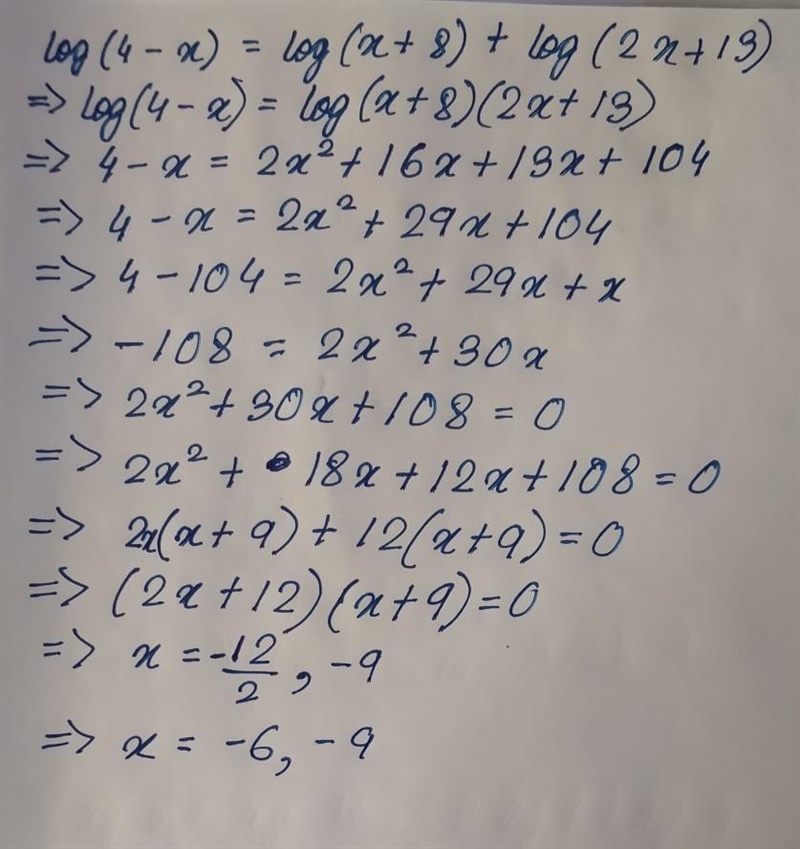 log(4-x) = log(x+8) + log(2x+13)
=> log(4-x) = log(x+8)(2x+13)
=> 4-x = 2x²+16x+13x+104
=> 4-x = 2x²+29x+104
=> 4-104 = 2x²+29x+x
=> -108 = 2x²+30x
=> 2x²+30x+108 = 0
=> 2x²+18x+12x+108=0
=> 2x(x+9)+12(x+9)=0
=> (2x+12)(x+9)=0
=> x = -12/2, -9
=> x = -6, -9